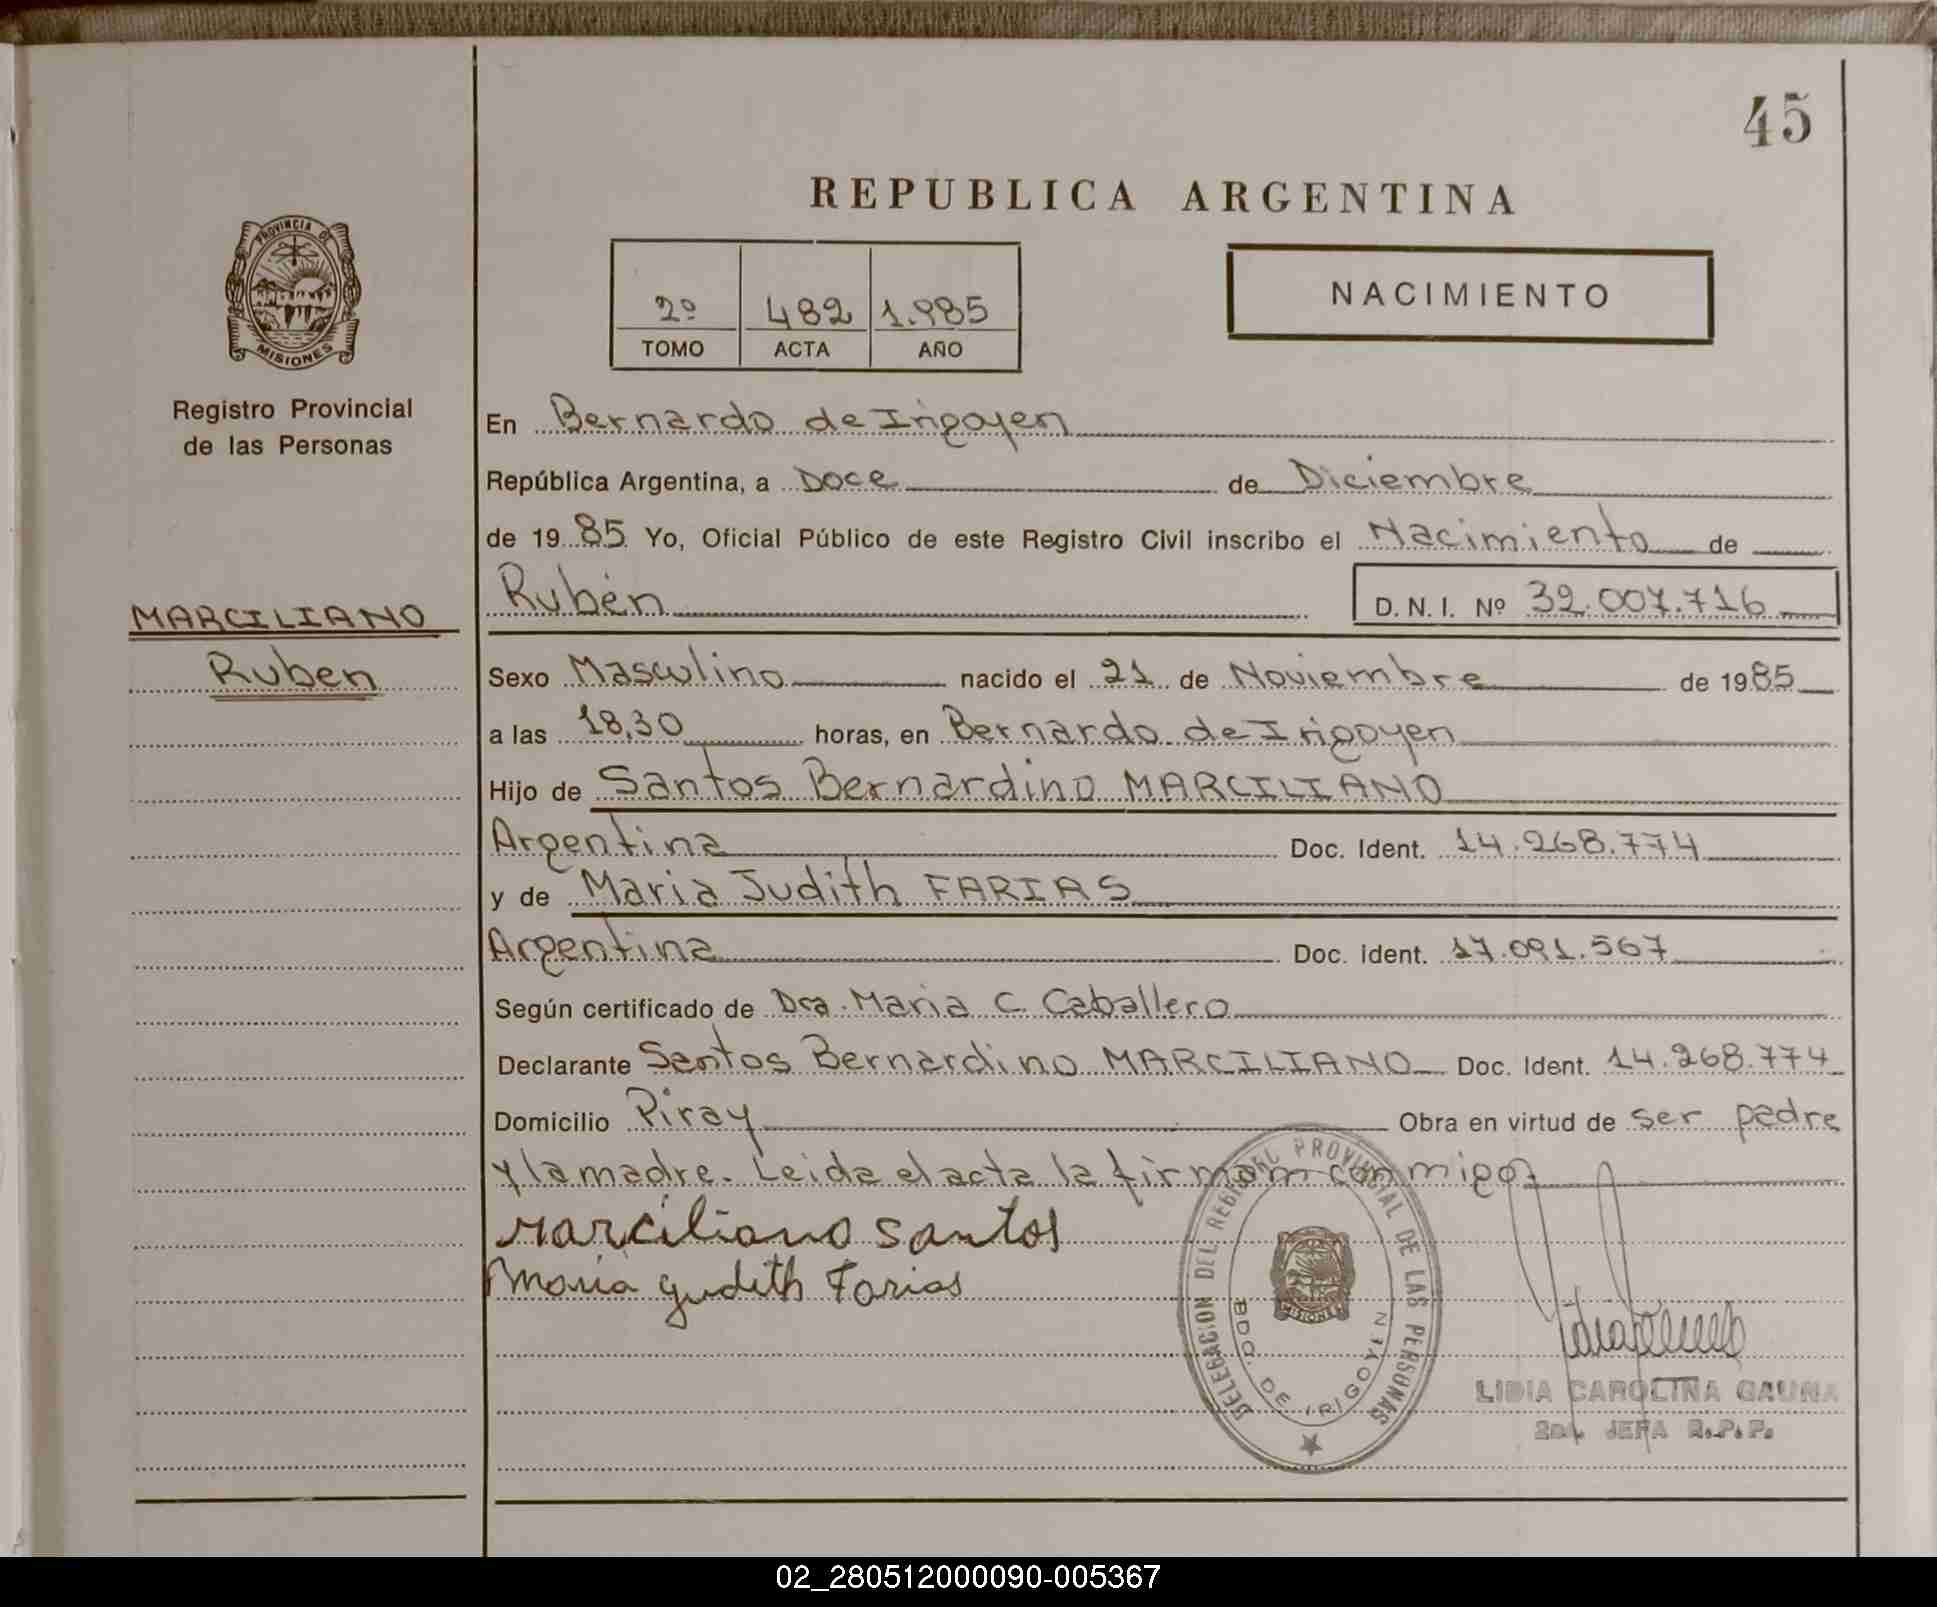 45
REPUBLICA ARGENTINA
PROVINCIA DE
MISIONES
2º 482 1.985
TOMO ACTA AÑO
NACIMIENTO
Registro Provincial
de las Personas
En Bernardo de Irigoyen
República Argentina, a Doce de Diciembre
de 1985 Yo, Oficial Público de este Registro Civil inscribo el Nacimiento de
MARCILIANO
Rubén D.N.I. Nº 32.007.716
Ruben
Sexo Masculino nacido el 21 de Noviembre de 1985
a las 18,30 horas, en Bernardo de Irigoyen
Hijo de Santos Bernardino MARCILIANO
Argentina Doc. Ident. 14.268.774
y de Maria Judith FARIAS
Argentina Doc. Ident. 17.091.567
Según certificado de Dra. Maria C. Caballero
Declarante Santos Bernardino MARCILIANO Doc. Ident. 14.268.774
Domicilio Piray Obra en virtud de ser padre
y la madre. Leida el acta la firmam conmigo
Marciliano Santos
Maria Judith Farias
DELEGACION DEL REGISTRO PROVINCIAL DE LAS PERSONAS
MISIONES
BDO. DE IRIGOYEN
LIDIA CAROLINA GAUNA
2da. JEFA R.P.P.
02_280512000090-005367